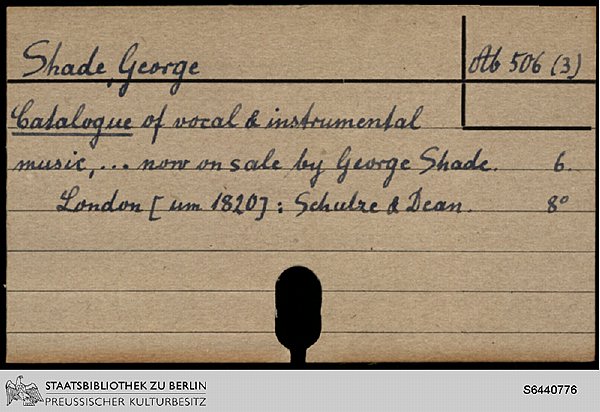 Shade, George
Ab 506 (3)
Catalogue of vocal & instrumental
music, ... now on sale by George Shade. 6.
London [um 1820]: Schulze & Dean. 8°
STAATSBIBLIOTHEK ZU BERLIN
PREUSSISCHER KULTURBESITZ
S6440776